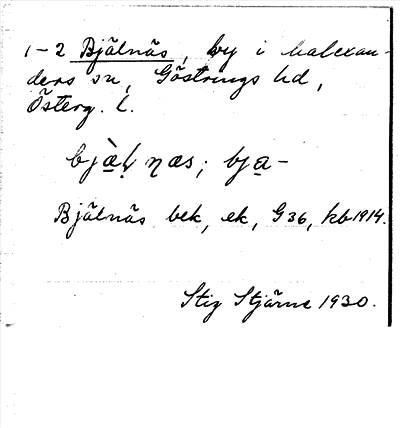 1-2 Bjälnäs, by i Malexan-
ders sn, Göstrings hd,
Österg. l.
bjàl̥ næs; bja-
Bjälnäs bek, ek, G36, kb 1914.
Stig Stjärne 1930.